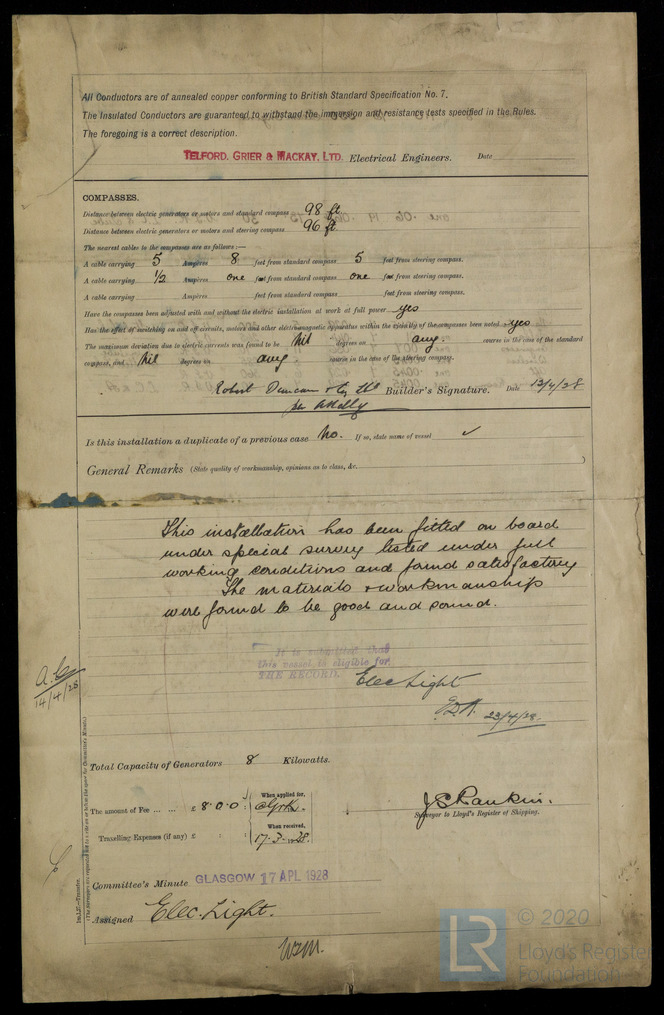 All Conductors are of annealed copper conforming to British Standard Specification No. 7.
The Insulated Conductors are guaranteed to withstand the immersion and resistance tests specified in the Rules.
The foregoing is a correct description.
TELFORD, GRIER & MACKAY, LTD. Electrical Engineers. Date
COMPASSES.
Distance between electric generators or motors and standard compass 98 ft
Distance between electric generators or motors and steering compass 96 ft
The nearest cables to the compasses are as follows:—
A cable carrying 5 Ampères 8 feet from standard compass 5 feet from steering compass.
A cable carrying 1/2 Ampères one feet from standard compass one feet from steering compass.
A cable carrying Ampères feet from standard compass feet from steering compass.
Have the compasses been adjusted with and without the electric installation at work at full power yes
Has the effect of switching on and off circuits, motors and other electromagnetic apparatus within the vicinity of the compasses been noted yes
The maximum deviation due to electric currents was found to be Nil degrees on any course in the case of the standard
compass, and Nil degrees on any course in the case of the steering compass.
Robert Duncan & Co Ltd Builder's Signature. Date 13/4/28
per
Is this installation a duplicate of a previous case No. If so, state name of vessel ✓
General Remarks (State quality of workmanship, opinions as to class, &c.
This installation has been fitted on board
under special survey tested under full
working conditions and found satisfactory
The materials & workmanship
were found to be good and sound.
It is submitted that
this vessel is eligible for
THE RECORD. Elec Light
23/4/28.
14/4/28
Total Capacity of Generators 8 Kilowatts.
The amount of Fee ... ... £ 8:0:0 When applied for,
Travelling Expenses (if any) £ : : When received,
17.3.28.
J S Rankin.
Surveyor to Lloyd's Register of Shipping.
Committee's Minute GLASGOW 17 APL 1928
Assigned Elec. Light.
LR © 2020
Lloyd's Register
Foundation